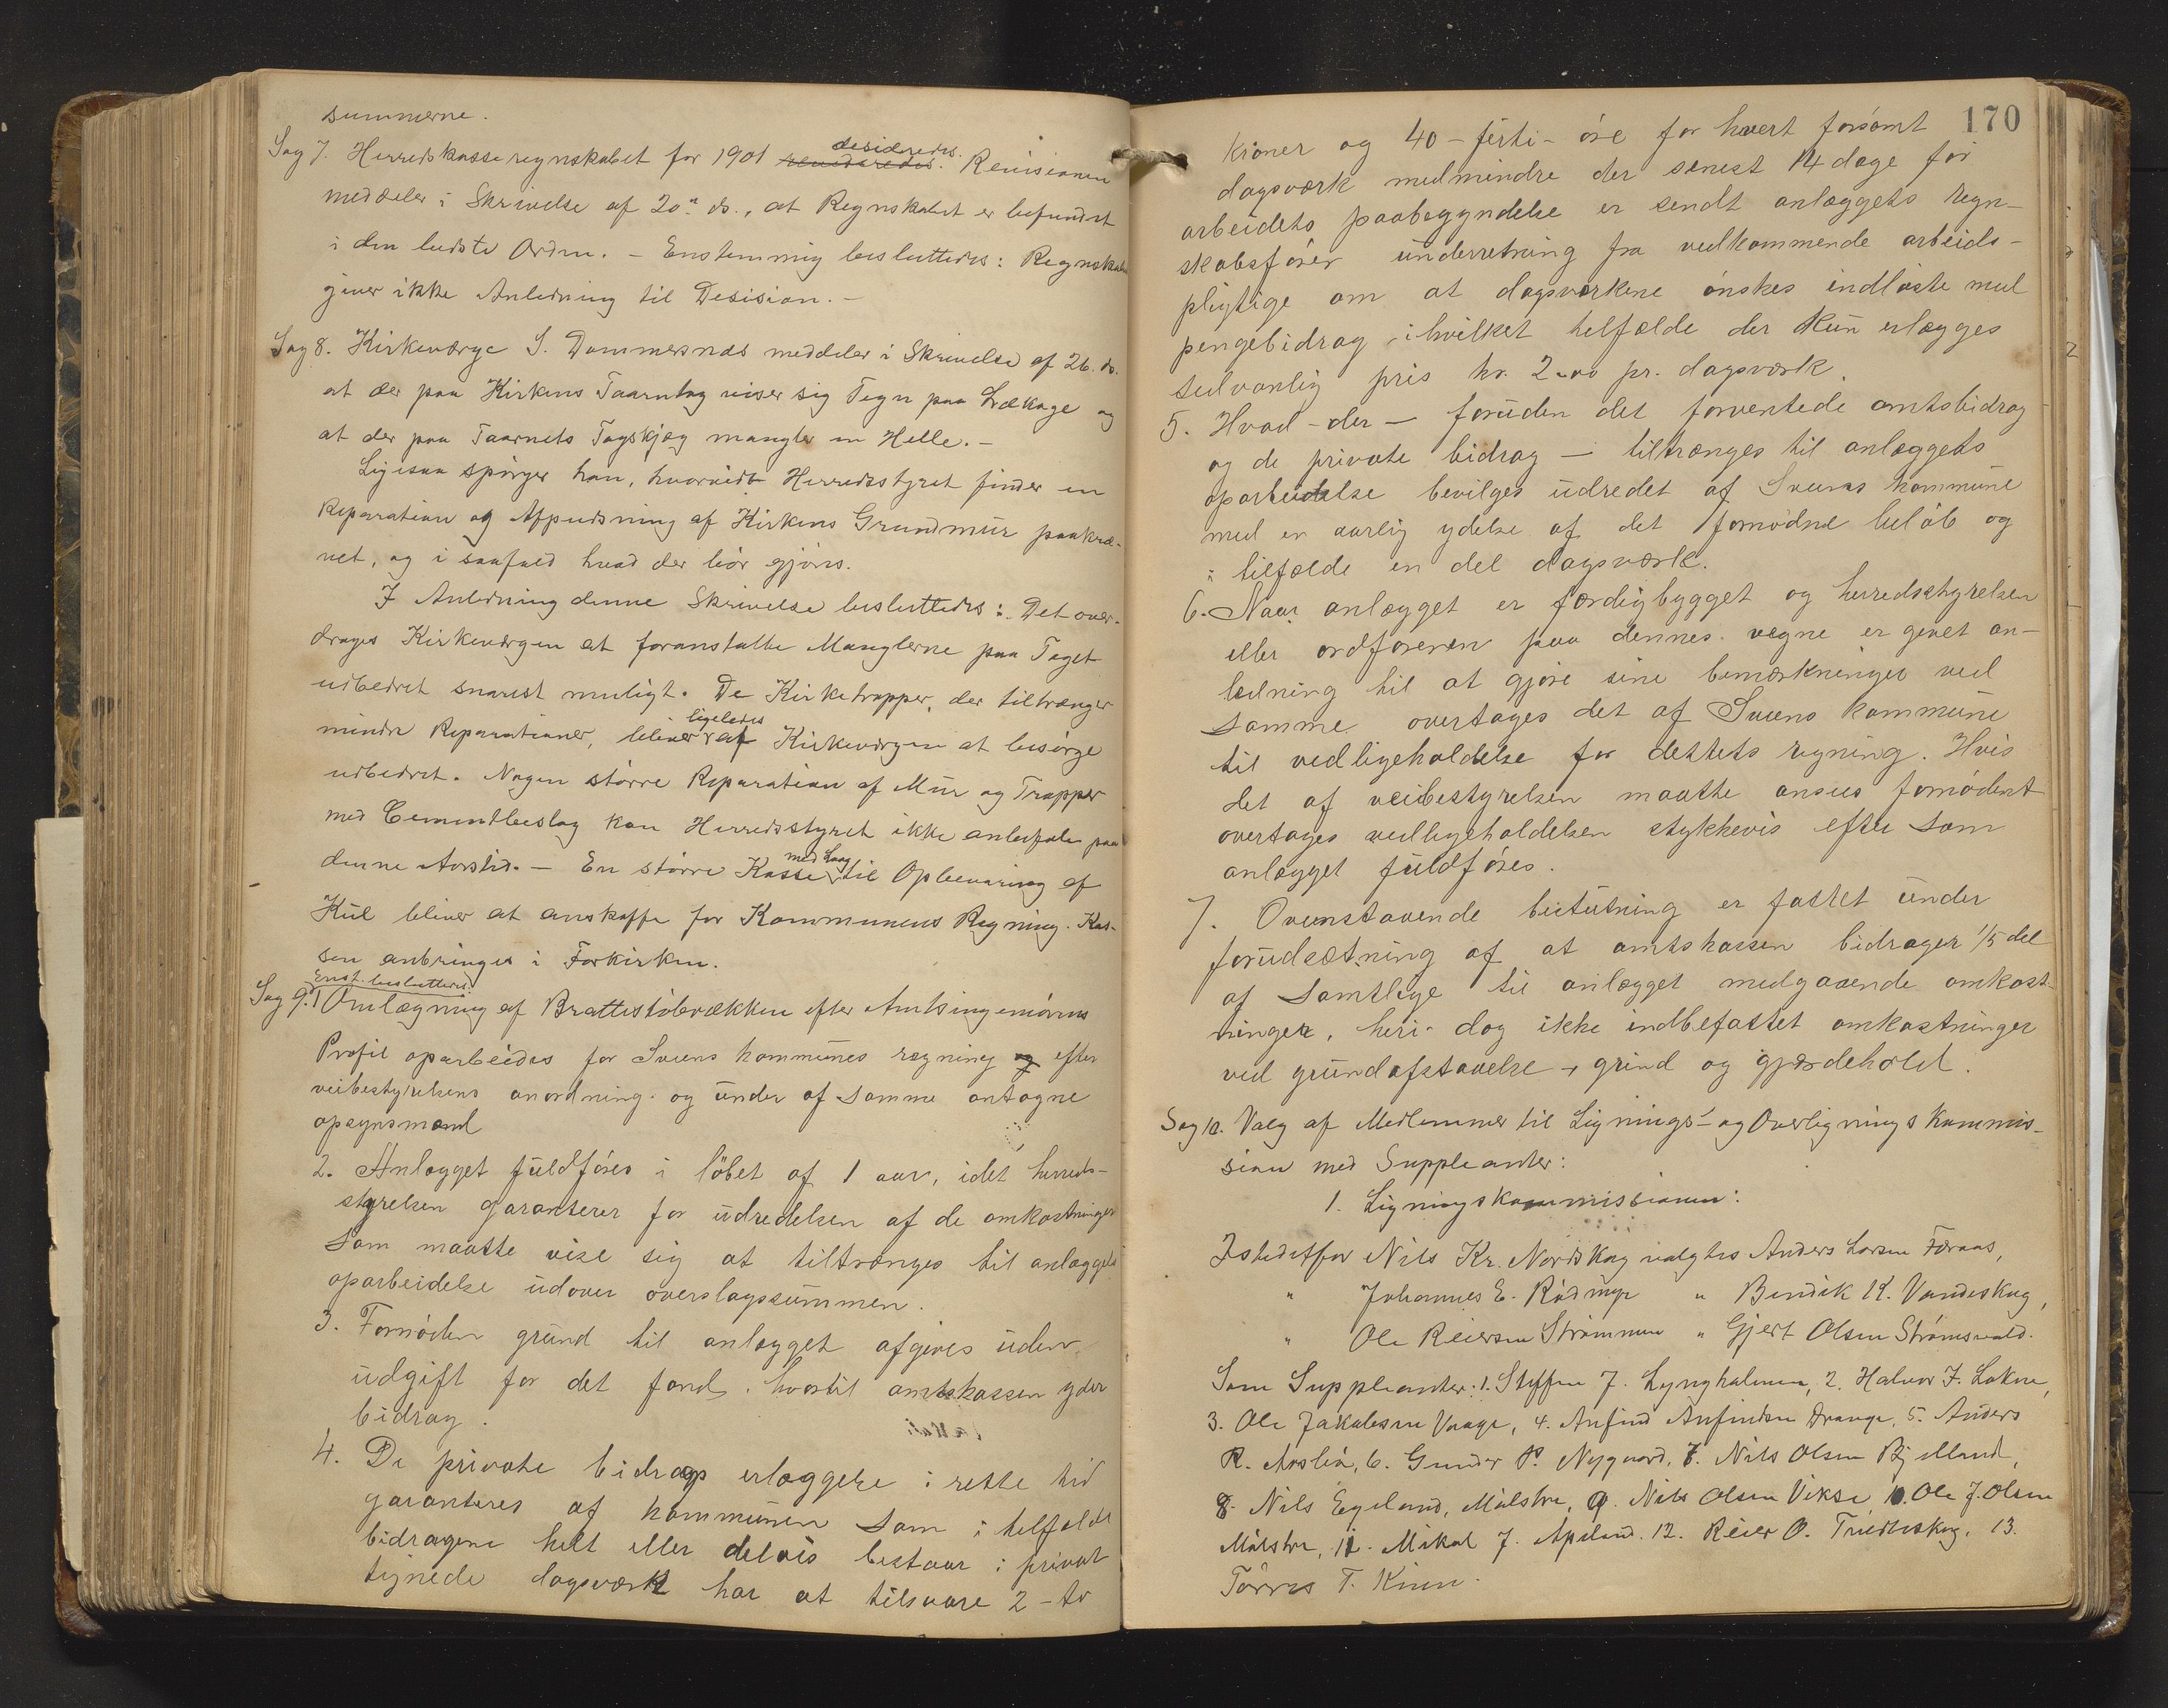 summerne.
Sag 7. Herredskasseregnskabet for 1901 revideredes. desideredes. Revisionen
meddeler i Skrivelse af 20de ds., at Regnskabet er befundet
i den bedste Orden. - Enstemmig besluttedes: Regnskabet
giver ikke Anledning til Desision. -
Sag 8. Kirkeværge S. Dommersnæs meddeler i Skrivelse af 26. ds.
at der paa Kirkens Taarntag viser sig Tegn paa Lækage og
at der paa Taarnets Tagskjæg mangler en Helle. -
Ligesaa spörger han, hvorvidt Herredsstyret finder en
Reparation og Afpudsning af Kirkens Grundmur paakræ-
vet, og i saafald hvad der bör gjöres.
I Anledning denne Skrivelse besluttedes: Det over-
drages Kirkeværgen at foranstalte Manglerne paa Taget
udbedret snarest muligt. De Kirketrapper, der tiltrænger
mindre Reparationer, bliver ligeledes af Kirkeværgen at besörge
udbedret. Nogen större Reparation af Mur og Trapper
med Cementbeslag kan Herredsstyret ikke anbefale paa
denne Aarstid. - En större Kasse med Laag til Opbevaring af
Kul bliver at anskaffe for Kommunens Regning. Kas-
sen anbringes i Forkirken.
Enst. besluttedes:
Sag 9. 1 Omlægning af Brattestöbrækken efter Amtsingeniörens
Profil oparbeides for Sveens kommunes regning og efter
veibestyrelsens anordning og under af samme antagne
opsynsmænd
2. Anlægget fuldföres i löbet af 1 aar, idet herreds-
styrelsen garanterer for udredelsen af de omkostninger
som maatte vise sig at tiltrænges til anlæggets
oparbeidelse udover overslagssummen.
3. Fornöden grund til anlægget afgives uden
udgift for det fond, hvortil amtskassen yder
bidrag.
4. De private bidrags erlæggelse i rette tid
garanteres af kommunen som i tilfælde
bidragene helt eller delvis bestaar i privat
tegnede dagsværk har at tilsvare 2 - to
170
kroner og 40 - förti - öre for hvert forsömt
dagsværk medmindre der senest 14 dage för
arbeidets paabegyndelse er sendt anlæggets regn-
skabsförer underretning fra vedkommende arbeids-
pligtige om at dagsværkene önskes indlöste med
pengebidrag i hvilket tilfælde der kun erlægges
sedvanlig pris kr. 2.00 pr. dagsværk.
5. Hvad - der - foruden det forventede amtsbidrag
og de private bidrag - tiltrænges til anlæggets
oparbeidelse bevilges udredet af Sveens kommune
med en aarlig ydelse af det fornödne belöb og
i tilfælde en del dagsværk.
6. Naar anlægget er færdigbygget og herredsstyrelsen
eller ordföreren paa dennes vegne er givet an-
ledning til at gjöre sine bemærkninger ved
samme overtages det af Sveens kommune
til vedligeholdelse for dettets regning. Hvis
det af veibestyrelsen maatte ansees fornödent
overtages vedligeholdelsen stykkevis efter som
anlægget fuldföres.
7. Ovenstaaende beslutning er fattet under
forudsætning af at amtskassen bidrager 1/5 del
af samtlige til anlægget medgaaende omkost-
ninger, heri dog ikke indbefattet omkostninger
ved grundafstaaelse, grind og gjærdehold.
Sag 10. Valg af Medlemmer til Lignings- og Overligningskommis-
sion med Suppleanter:
1. Ligningskommissionen:
Istedetfor Nils Kr. Nordskog valgtes Anders Larsen Færaas,
" Johannes E. Rödmyr " Bendik K. Vandaskog,
" Ole Reiersen Strömmen " Gjert Olsen Strömsvold.
Som Suppleanter: 1. Steffen J. Lyngholmen, 2. Halvor J. Lokna,
3. Ole Jakobsen Vaage, 4. Anfind Anfindsen Drange, 5. Anders
R. Aasliá, 6. Gunder P. Nygaard, 7. Nils Olsen Bjelland,
8. Nils Egeland, Mölstre, 9. Nils Olsen Vikse, 10. Ole J. Olsen
Mölstre, 11. Mikal J. Apeland. 12. Reier O. Tveitaskog, 13.
Törres T. Kinn.